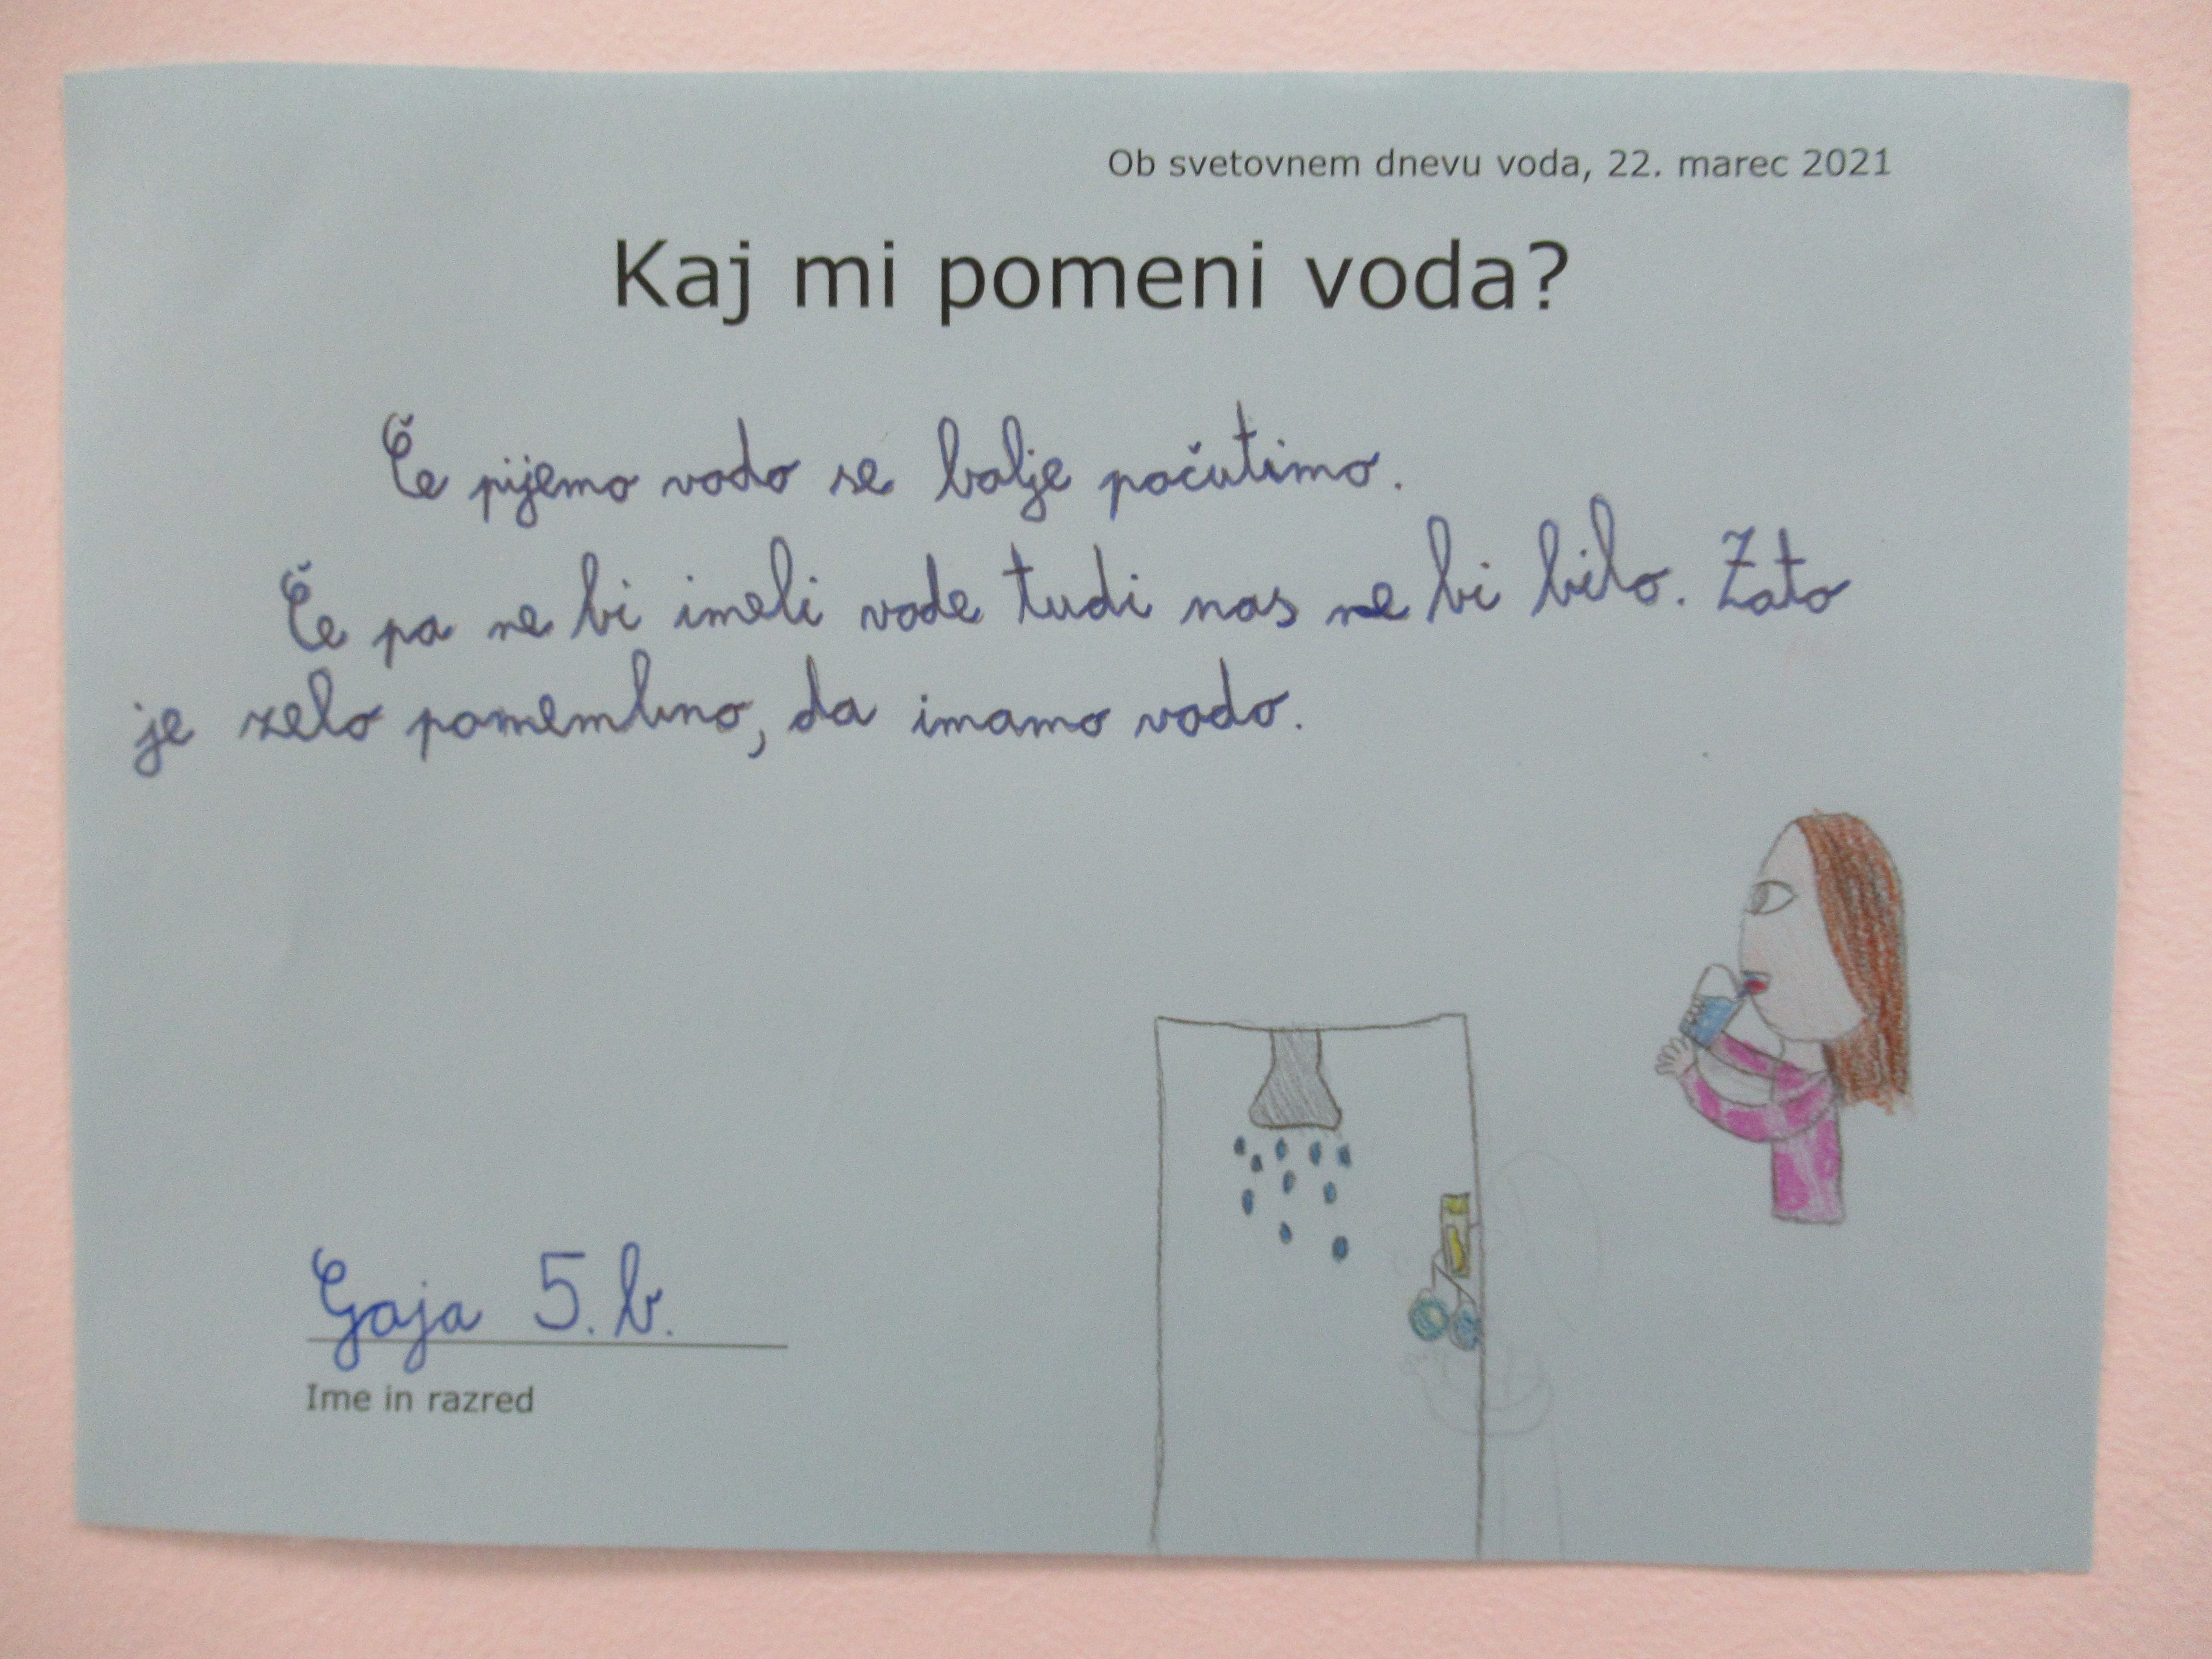 Ob svetovnem dnevu voda, 22. marec 2021
Kaj mi pomeni voda?
Če pijemo vodo se bolje počutimo.
Če pa ne bi imeli vode tudi nas ne bi bilo. Zato
je zelo pomembno, da imamo vodo.
Gaja 5. b.
Ime in razred